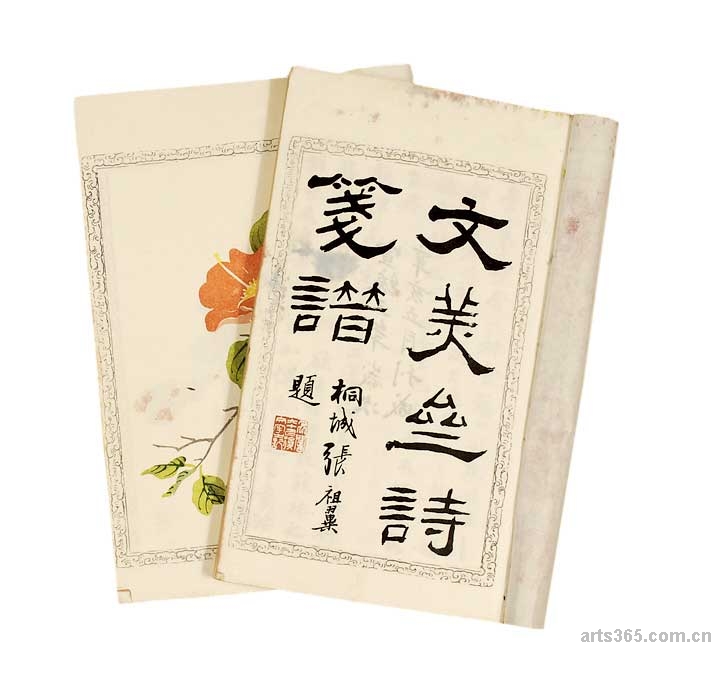 文美亝詩
箋譜
桐城張祖翼
題
arts365.com.cn